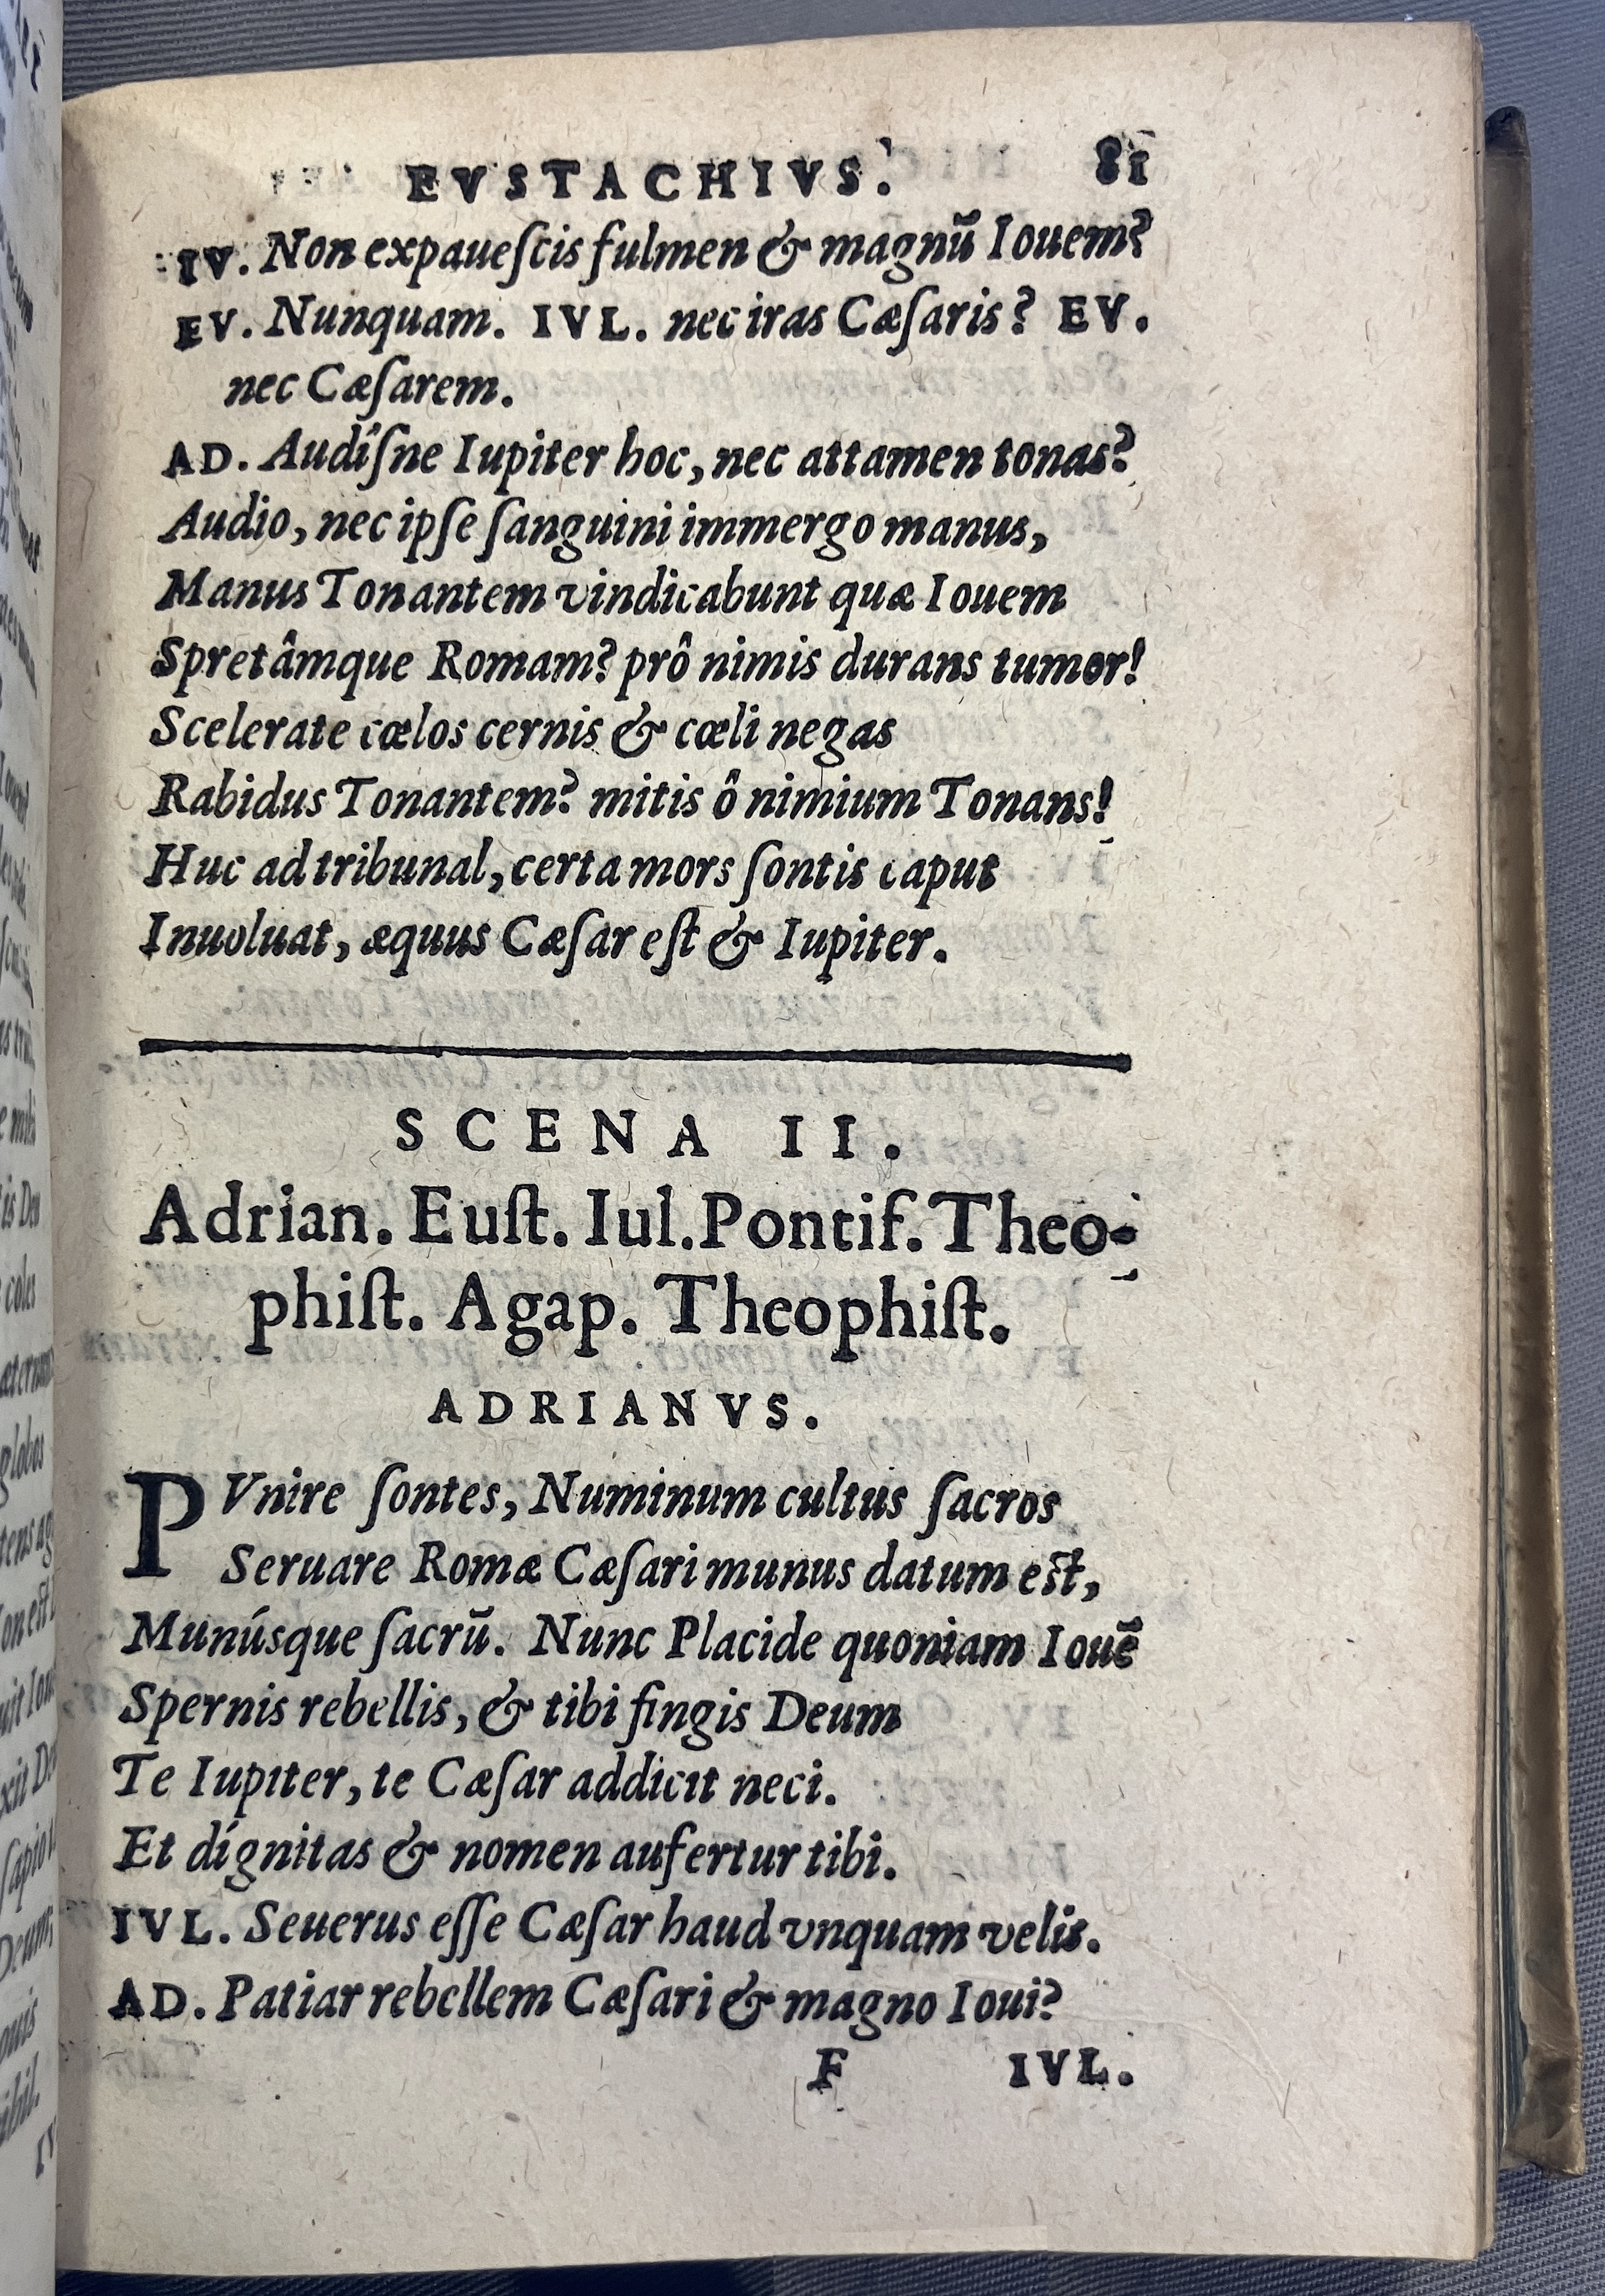 EVSTACHIVS. 81
IV. Non expaueſcis fulmen & magnũ Iouem?
EV. Nunquam. IVL. nec iras Cæſaris? EV.
nec Cæſarem.
AD. Audiſne Iupiter hoc, nec attamen tonas?
Audio, nec ipſe ſanguini immergo manus,
Manus Tonantem vindicabunt quæ Iouem
Spretâmque Romam? prô nimis durans tumor!
Scelerate cœlos cernis & cœli negas
Rabidus Tonantem? mitis ô nimium Tonans!
Huc ad tribunal, certa mors ſontis caput
Inuoluat, æquus Cæſar eſt & Iupiter.
SCENA II.
Adrian. Euſt. Iul. Pontif. Theo-
phiſt. Agap. Theophiſt.
ADRIANVS.
PVnire ſontes, Numinum cultus ſacros
Seruare Romæ Cæſari munus datum eſt,
Munúsque ſacrũ. Nunc Placide quoniam Iouẽ
Spernis rebellis, & tibi fingis Deum
Te Iupiter, te Cæſar addicit neci.
Et dígnitas & nomen aufertur tibi.
IVL. Seuerus eſſe Cæſar haud vnquam velis.
AD. Patiar rebellem Cæſari & magno Ioui?
F IVL.